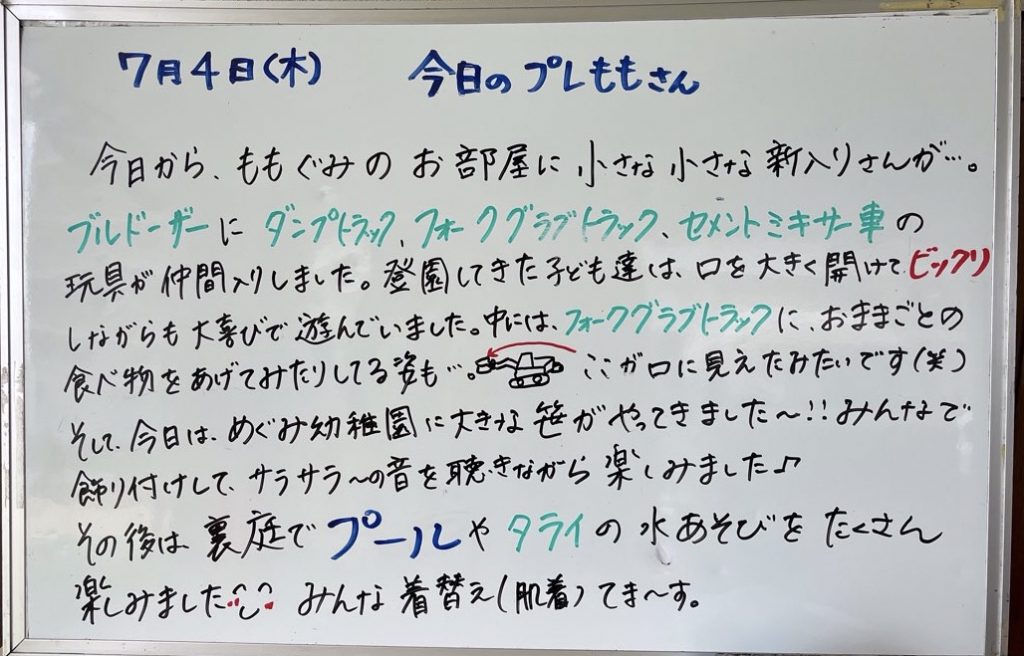 7月4日(木) 今日のプレももさん
今日から、ももぐみのお部屋に小さな小さな新入りさんが…。
ブルドーザーにダンプトラック、フォークグラブトラック、セメントミキサー車の
玩具が仲間入りしました。登園してきた子ども達は、口を大きく開けてビックリ
しながらも大喜びで遊んでいました。中には、フォークグラブトラックに、おままごとの
食べ物をあげてみたりしてる姿も…。ここが口に見えたみたいです(笑)
そして、今日は、めぐみ幼稚園に大きな笹がやってきました〜!!みんなで
飾り付けして、サラサラ〜の音を聴きながら楽しみました♪
その後は、裏庭でプールやタライの水あそびをたくさん
楽しみました みんな着替え(肌着)てま〜す。